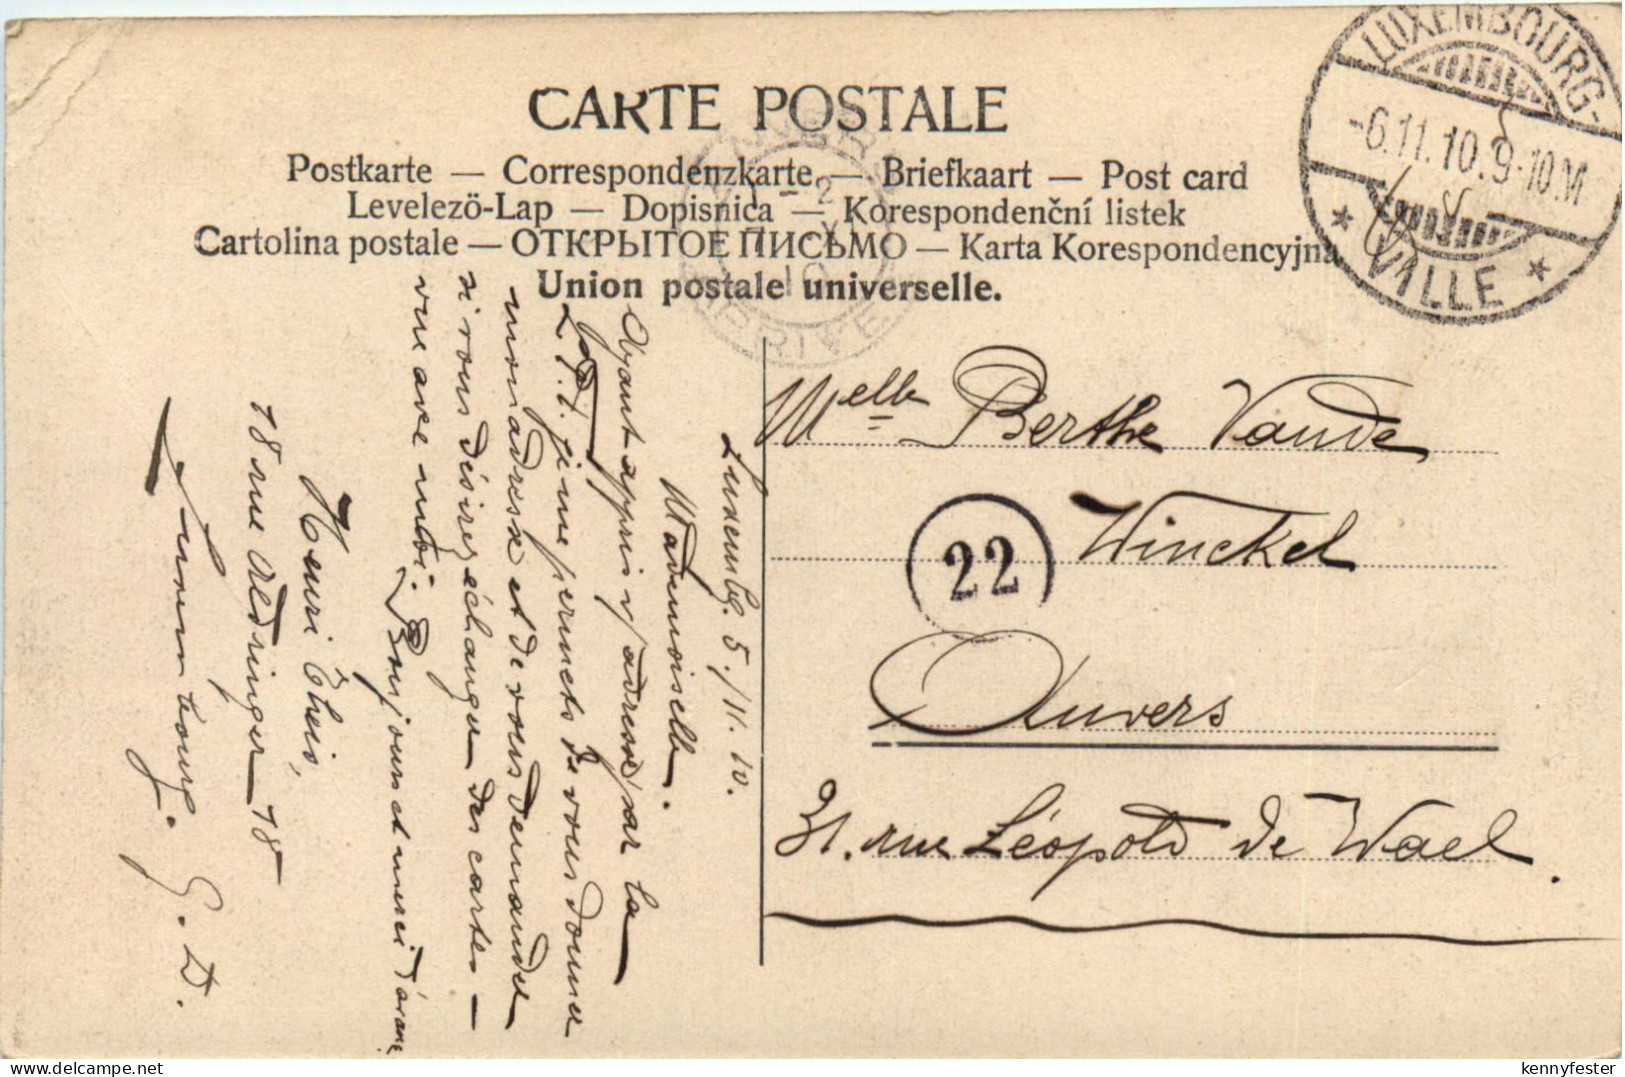 CARTE POSTALE
Postkarte — Correspondenzkarte — Briefkaart — Post card
Levelezö-Lap — Dopisnica — Korespondenční listek
Cartolina postale — ОТКРЫТОЕ ПИСЬМО — Karta Korespondencyjna
Union postale universelle.
LUXEMBOURG-
-6.11.10.9-10.M
* VILLE *
Melle Berthe Vande
Winckel
22
Anvers
31. rue Léopold de Wael.
Luxembg. 5./11. 10.
Mademoiselle.
Ayant appris v/adresse par la
je me permets de vous donner
mon adresse et de vous demander
si vous désirez échanger des cartes-
vue avec moi. Bonjour et merci d'avance
Henri
18 rue Aldringer 18
Luxembourg.
G. D.
delcampe.net
kennyfester